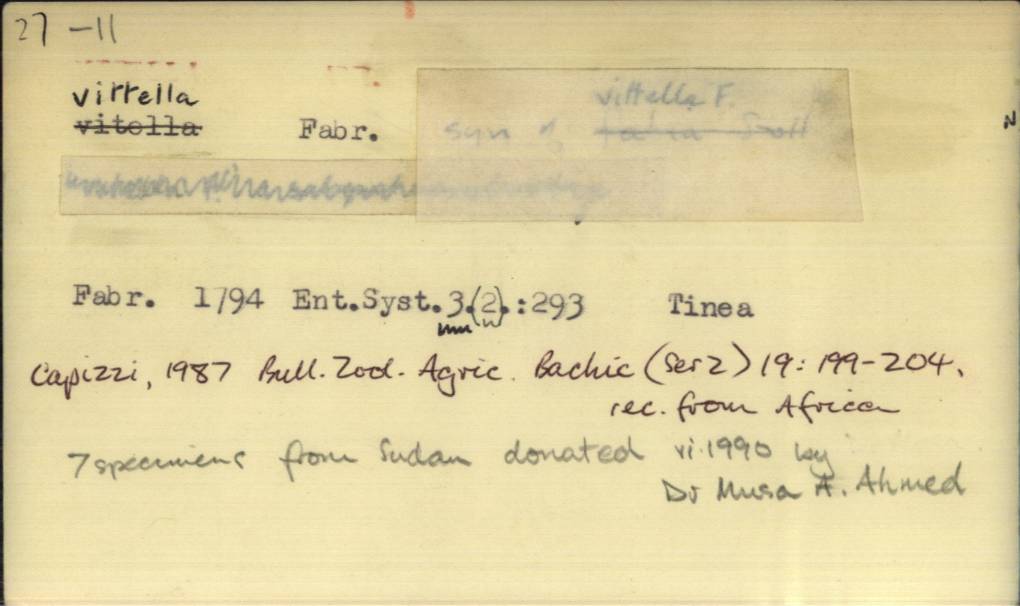 27-11
vittella
vitella Fabr.
vittella F.
syn of
N
Fabr. 1794 Ent.Syst.3.(2).:293 Tinea
Capizzi, 1987 Bull. Zool. Agric. Bachic (Ser 2) 19: 199-204.
rec. from Africa
7 specimens from Sudan donated vi.1990 by
Dr Musa A. Ahmed